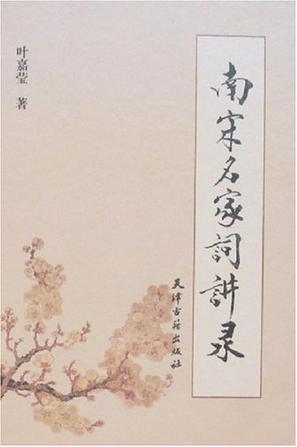 南宋名家詞講录
叶嘉莹 著
天津古籍出版社